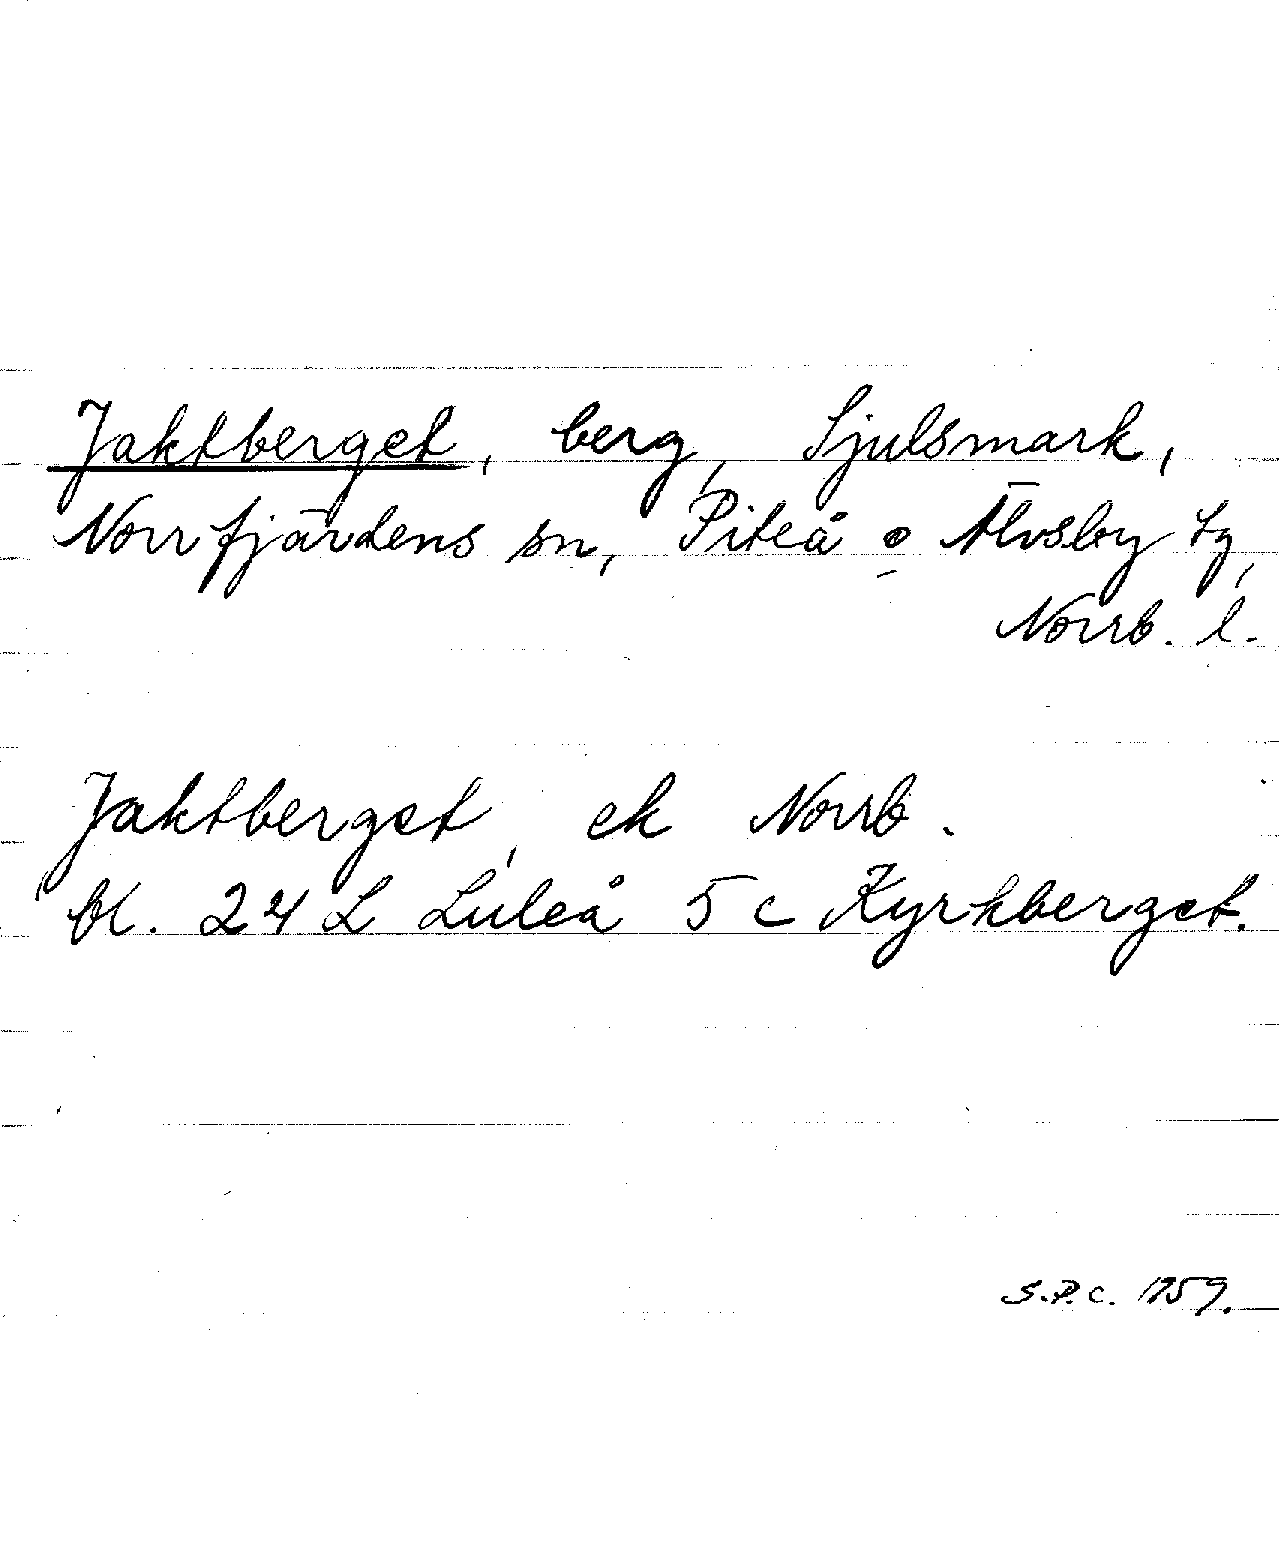 Jaktberget, berg, Sjulsmark,
Norrfjärdens sn, Piteå o Älvsby tg,
Norrb. l.
Jaktberget, ek Norrb.
bl. 24 L Luleå 5 c Kyrkberget.
S.P.C. 1959.